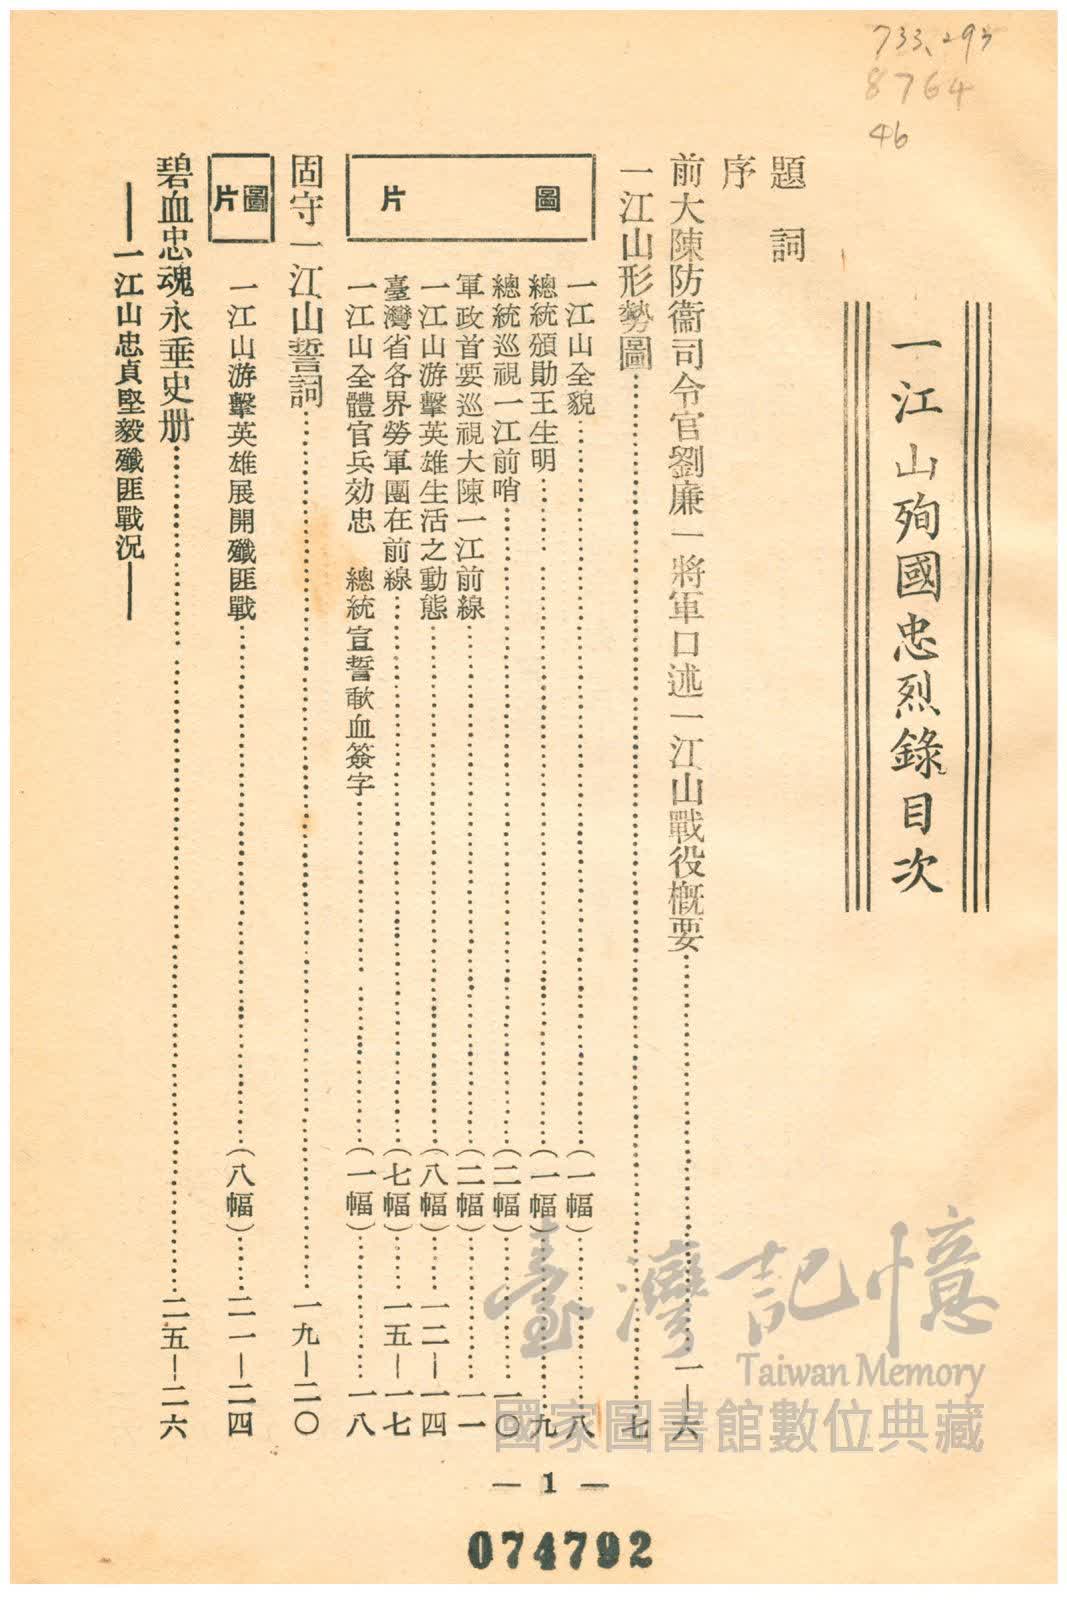 733.293
8764
46
一江山殉國忠烈錄目次
題　詞
序
前大陳防衞司令官劉廉一將軍口述一江山戰役概要……一—六
一江山形勢圖……七
圖片
一江山全貌……(一幅)……八
總統頒勛王生明……(一幅)……九
總統巡視一江前哨……(二幅)……一〇
軍政首要巡視大陳一江前線……(二幅)……一一
一江山游擊英雄生活之動態……(八幅)……一二—一四
臺灣省各界勞軍團在前線……(七幅)……一五—一七
一江山全體官兵効忠　總統宣誓歃血簽字……(一幅)……一八
固守一江山誓詞……一九—二〇
圖片
一江山游擊英雄展開殲匪戰……(八幅)……二一—二四
碧血忠魂永垂史册……二五—二六
——一江山忠貞堅毅殲匪戰況——
— 1 —
074792
臺灣記憶
Taiwan Memory
國家圖書館數位典藏